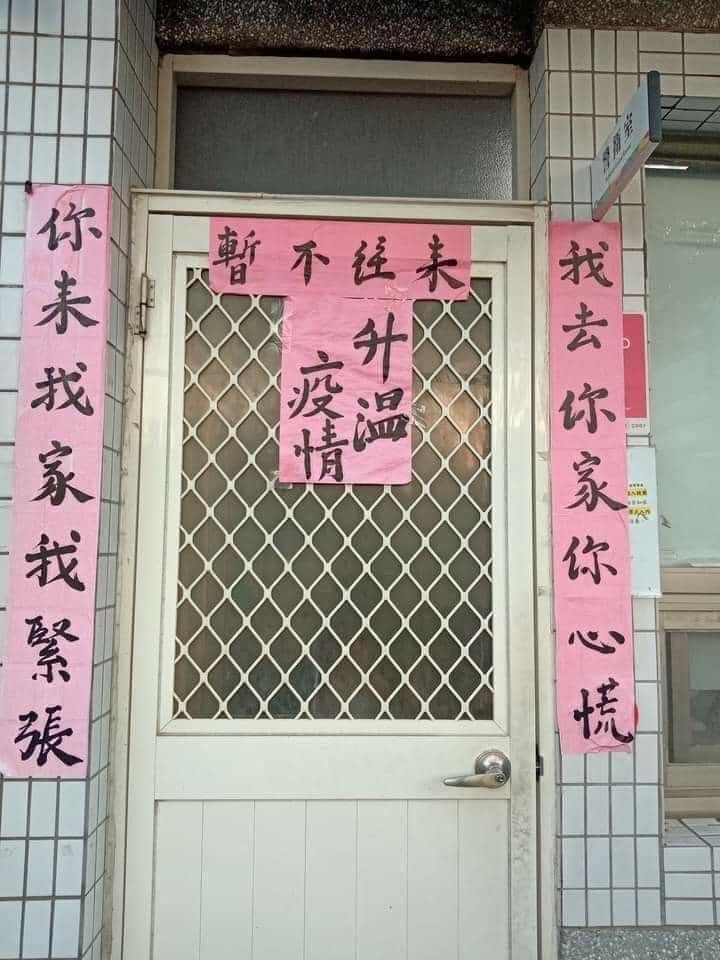 暫不往来
你来我家我緊張
我去你家你心慌
疫情
升温